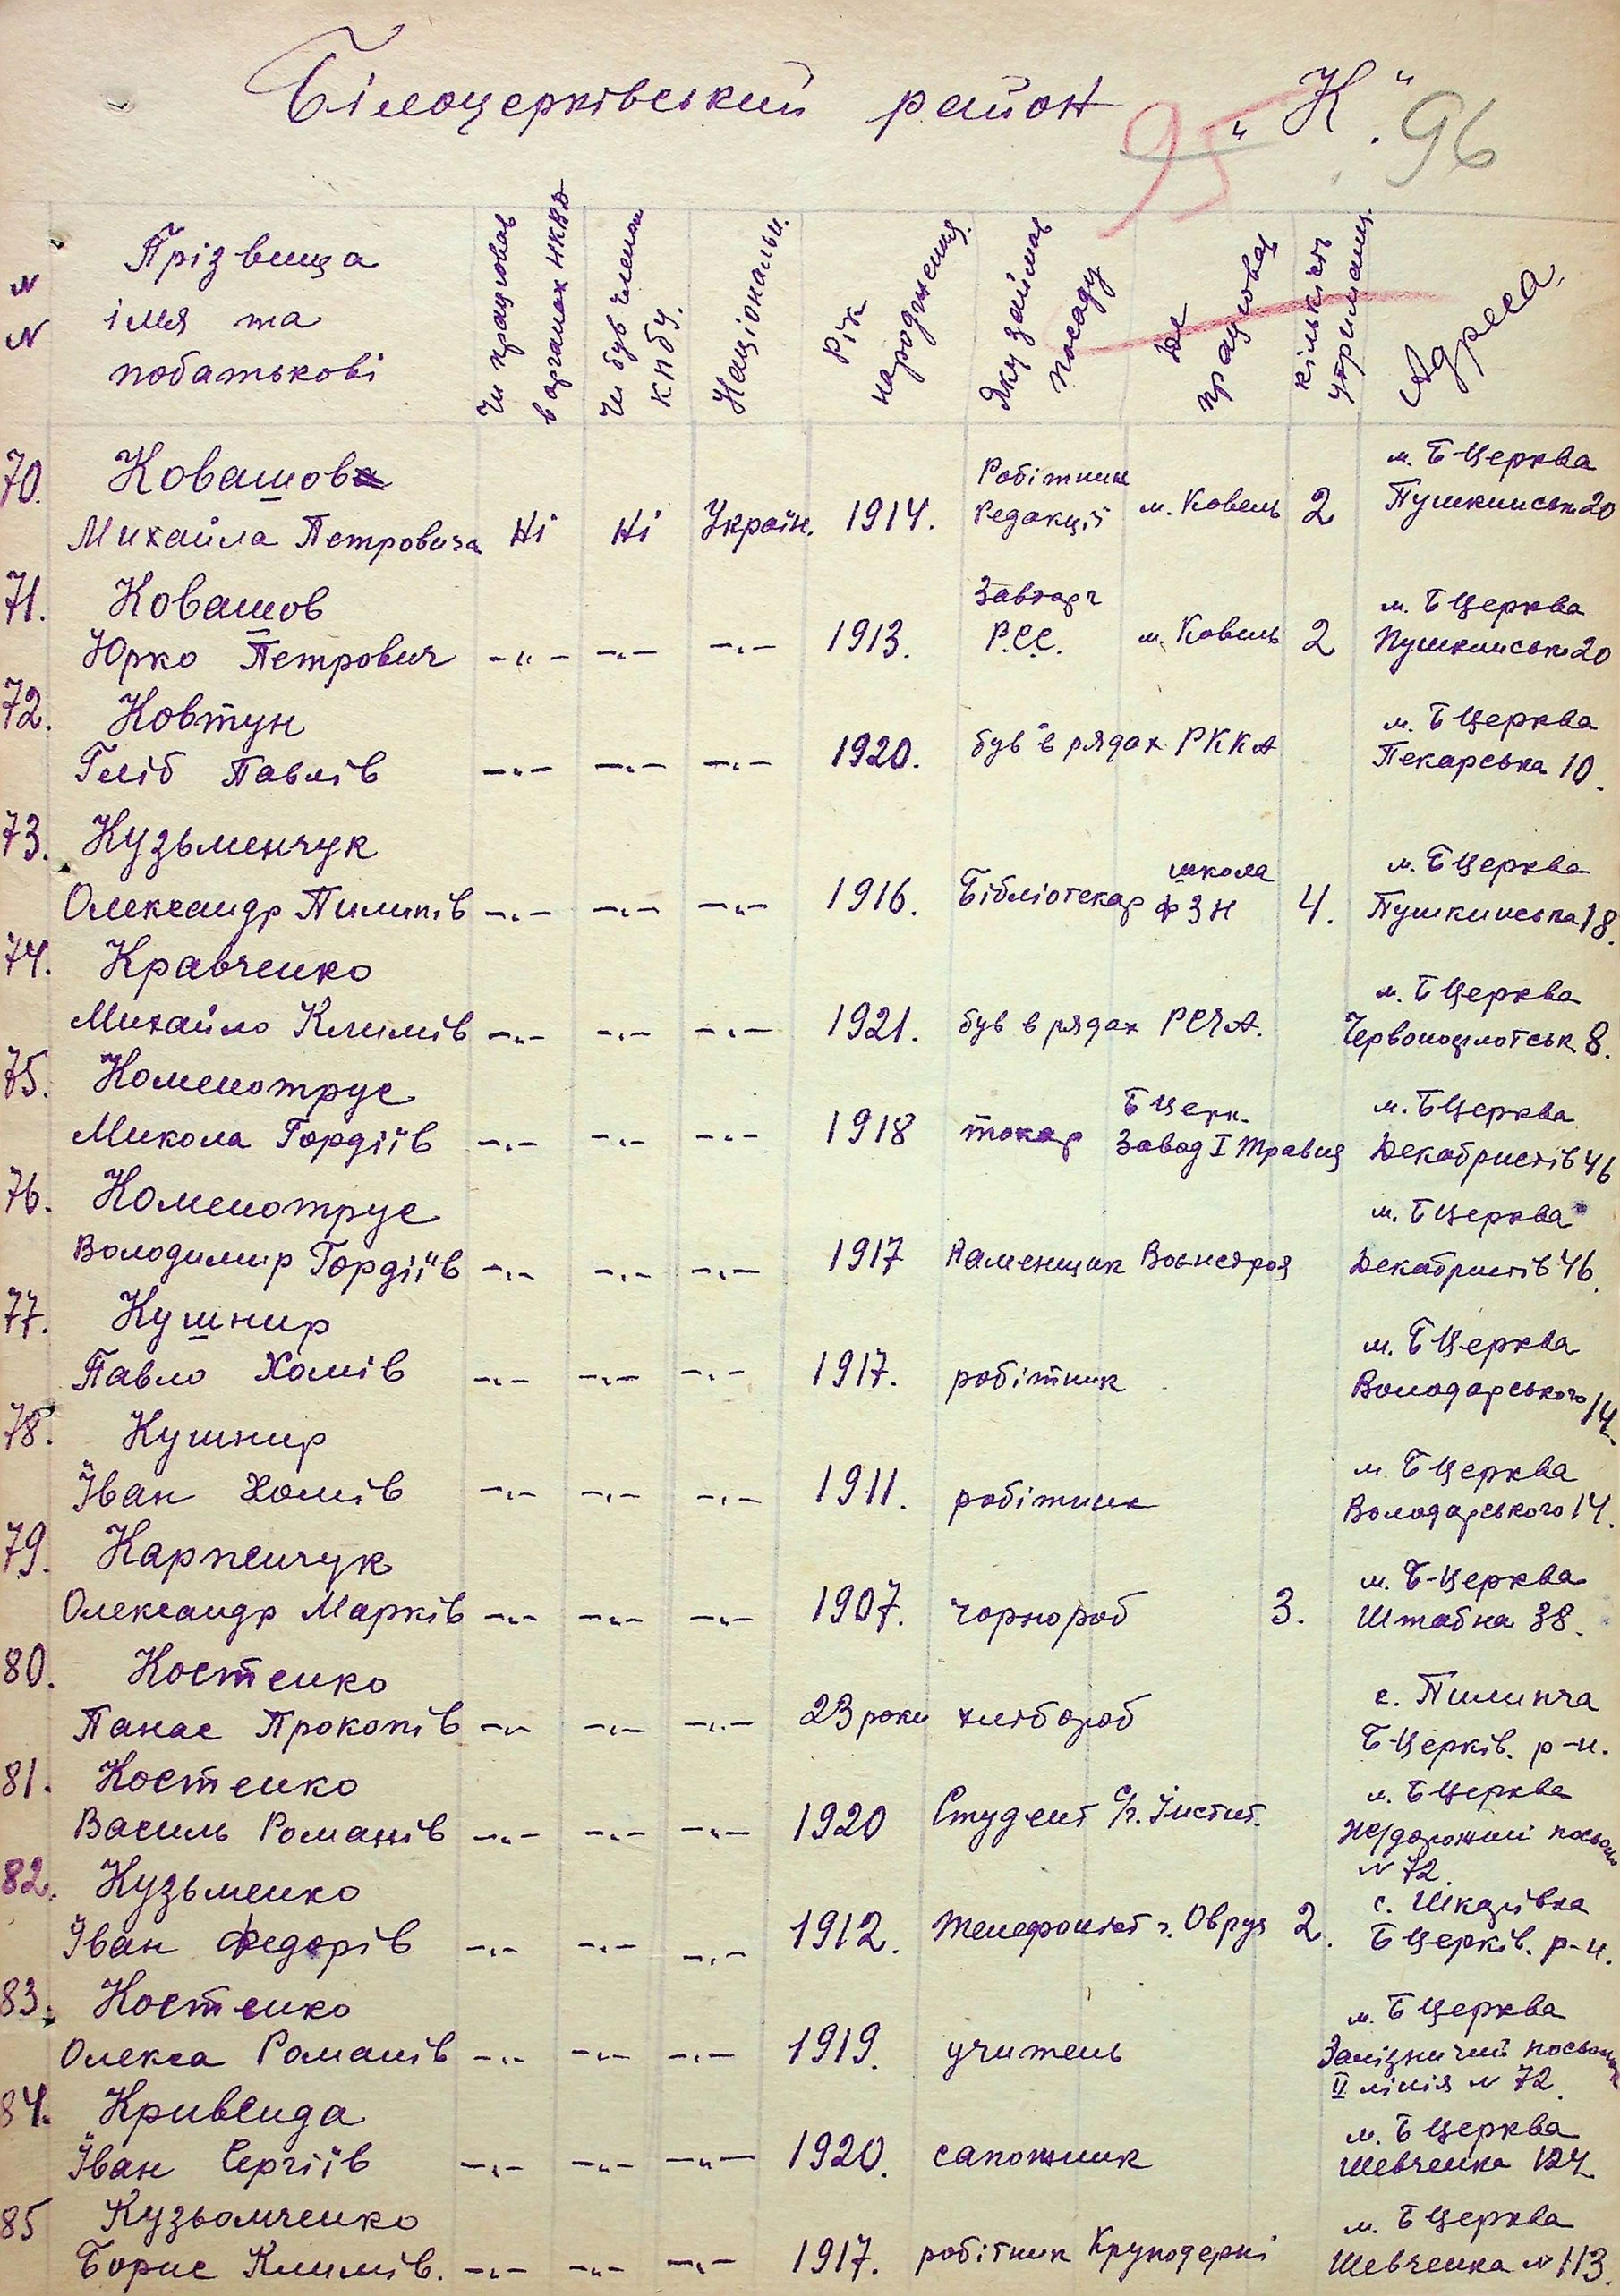 Білоцерківський район „К“
95 96
N N
Прізвища імя та побатькові
Чи працював в органах НКВД
Чи був членом КПбУ.
Національн.
Рік народження
Яку займав посаду
Де працював
кількість утриманц.
Адреса.
70. Ковашов м. Б Церква
Михайла Петровича Ні Ні Україн. 1914. Робітник редакції м. Ковель 2 Пушкинськ 20
71. Ковашов Завторг м. Б Церква
Юрко Петрович -"- -"- -"- 1913. Р.С.С. м. Ковель 2 Пушкинськ 20
72. Ковтун м. Б Церква
Гліб Павлів -"- -"- -"- 1920. був в рядах РККА Пекарська 10.
73. Кузьменчук школа м. Б Церква
Олександр Пилипів -"- -"- -"- 1916. Бібліотекар ФЗН 4. Пушкинська 18.
74. Кравченко м. Б Церква
Михайло Климів -"- -"- -"- 1921. був в рядах РСЧА. Червонофлотськ 8.
75. Коменотрус Б Церк. м. Б Церква
Микола Гордіїв -"- -"- -"- 1918 токар Завод I Травня Декабристів 46
76. Коменотрус м. Б Церква
Володимир Гордіїв -"- -"- -"- 1917 Каменщик Воєнстроя Декабристів 46.
77. Кушнир м. Б Церква
Павло Хомів -"- -"- -"- 1917. робітник Володарського 14.
78. Кушнир м. Б Церква
Іван Хомів -"- -"- -"- 1911. робітник Володарського 14.
79. Карпенчук м. Б-Церква
Олександр Марків -"- -"- -"- 1907. чорнороб 3. Штабна 38.
80. Костенко с. Пилипча
Панас Прокопів -"- -"- -"- 23 роки хлібороб Б-Церків. р-н.
81. Костенко м. Б Церква
Василь Романів -"- -"- -"- 1920 Студент С/г. Інстит. Же/дорожній
N 72.
82. Кузьменко с. Шкарівка
Іван Федорів -"- -"- -"- 1912. телефоніст г. Овруч 2. Б Церків. р-н.
83. Костенко м. Б Церква
Олекса Романів -"- -"- -"- 1919. учитель Залізничний
II лінія N 72.
84. Кривенда м. Б Церква
Іван Сергіїв -"- -"- -"- 1920. сапожник Шевченка 124
85 Кузьомченко м. Б Церква
Борис Климів. -"- -"- -"- 1917. робітник Круподерні Шевченка N 113.